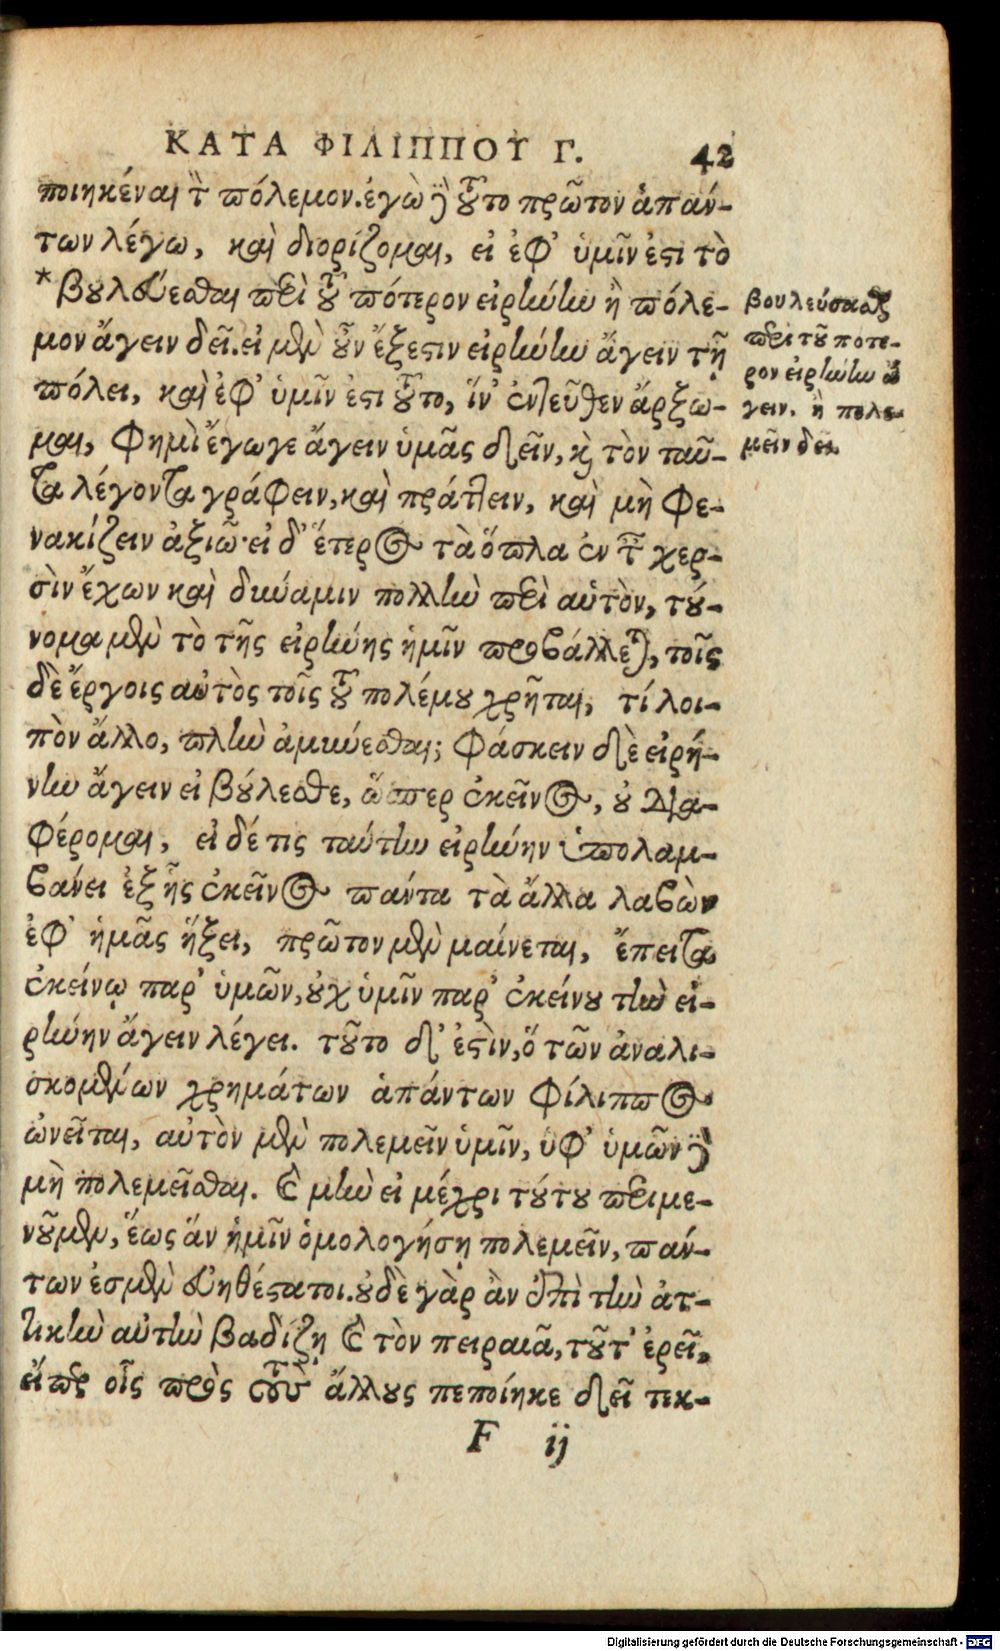 ΚΑΤΑ ΦΙΛΙΠΠΟΥ Γ. 42
ποιηκέναι τὸν πόλεμον. ἐγὼ δὲ τοῦτο πρῶτον ἁπάν-
των λέγω, καὶ διορίζομαι, εἰ ἐφ' ὑμῖν ἐστὶ τὸ
*βουλεύεσθαι περὶ τοῦ πότερον εἰρήνην ἢ πόλε-
μον ἄγειν δεῖ. εἰ μὲν οὖν ἔξεστιν εἰρήνην ἄγειν τῇ
πόλει, καὶ ἐφ' ὑμῖν ἐστι τοῦτο, ἵν' ἐντεῦθεν ἄρξω-
μαι, φημὶ ἔγωγε ἄγειν ὑμᾶς δεῖν, καὶ τὸν ταῦ-
τα λέγοντα γράφειν, καὶ πράττειν, καὶ μὴ φε-
νακίζειν ἀξιῶ· εἰ δ' ἕτερος τὰ ὅπλα ἐν ταῖς χερ-
σὶν ἔχων καὶ δύναμιν πολλὴν περὶ αὑτὸν, τού-
νομα μὲν τὸ τῆς εἰρήνης ἡμῖν προβάλλεται, τοῖς
δὲ ἔργοις αὐτὸς τοῖς τοῦ πολέμου χρῆται, τί λοι-
πὸν ἄλλο, πλὴν ἀμύνεσθαι; φάσκειν δὲ εἰρή-
νην ἄγειν εἰ βούλεσθε, ὥσπερ ἐκεῖνος, οὐ δια-
φέρομαι, εἰ δέ τις ταύτην εἰρήνην ὑπολαμ-
βάνει ἐξ ἧς ἐκεῖνος πάντα τὰ ἄλλα λαβὼν
ἐφ' ἡμᾶς ἥξει, πρῶτον μὲν μαίνεται, ἔπειτα
ἐκείνῳ παρ' ὑμῶν, οὐχ ὑμῖν παρ' ἐκείνου τὴν εἰ-
ρήνην ἄγειν λέγει. τοῦτο δ' ἐστὶν, ὃ τῶν ἀναλι-
σκομένων χρημάτων ἁπάντων Φίλιππος
ὠνεῖται, αὐτὸν μὲν πολεμεῖν ὑμῖν, ὑφ' ὑμῶν δὲ
μὴ πολεμεῖσθαι. καὶ μὴν εἰ μέχρι τούτου περιμε-
νοῦμεν, ἕως ἂν ἡμῖν ὁμολογήσῃ πολεμεῖν, πάν-
των ἐσμὲν εὐηθέστατοι. οὐδὲ γὰρ ἂν ἐπὶ τὴν ἀτ-
τικὴν αὐτὴν βαδίζῃ καὶ τὸν πειραιᾶ, τοῦτ' ἐρεῖ,
εἴπερ οἷς πρὸς τοὺς ἄλλους πεποίηκε δεῖ τεκ-
F ij
βουλεύσασθαι
περὶ τοῦ πότε-
ρον εἰρήνην ἄ
γειν. ἢ πολε-
μεῖν δεῖ.
Digitalisierung gefördert durch die Deutsche Forschungsgemeinschaft - DFG